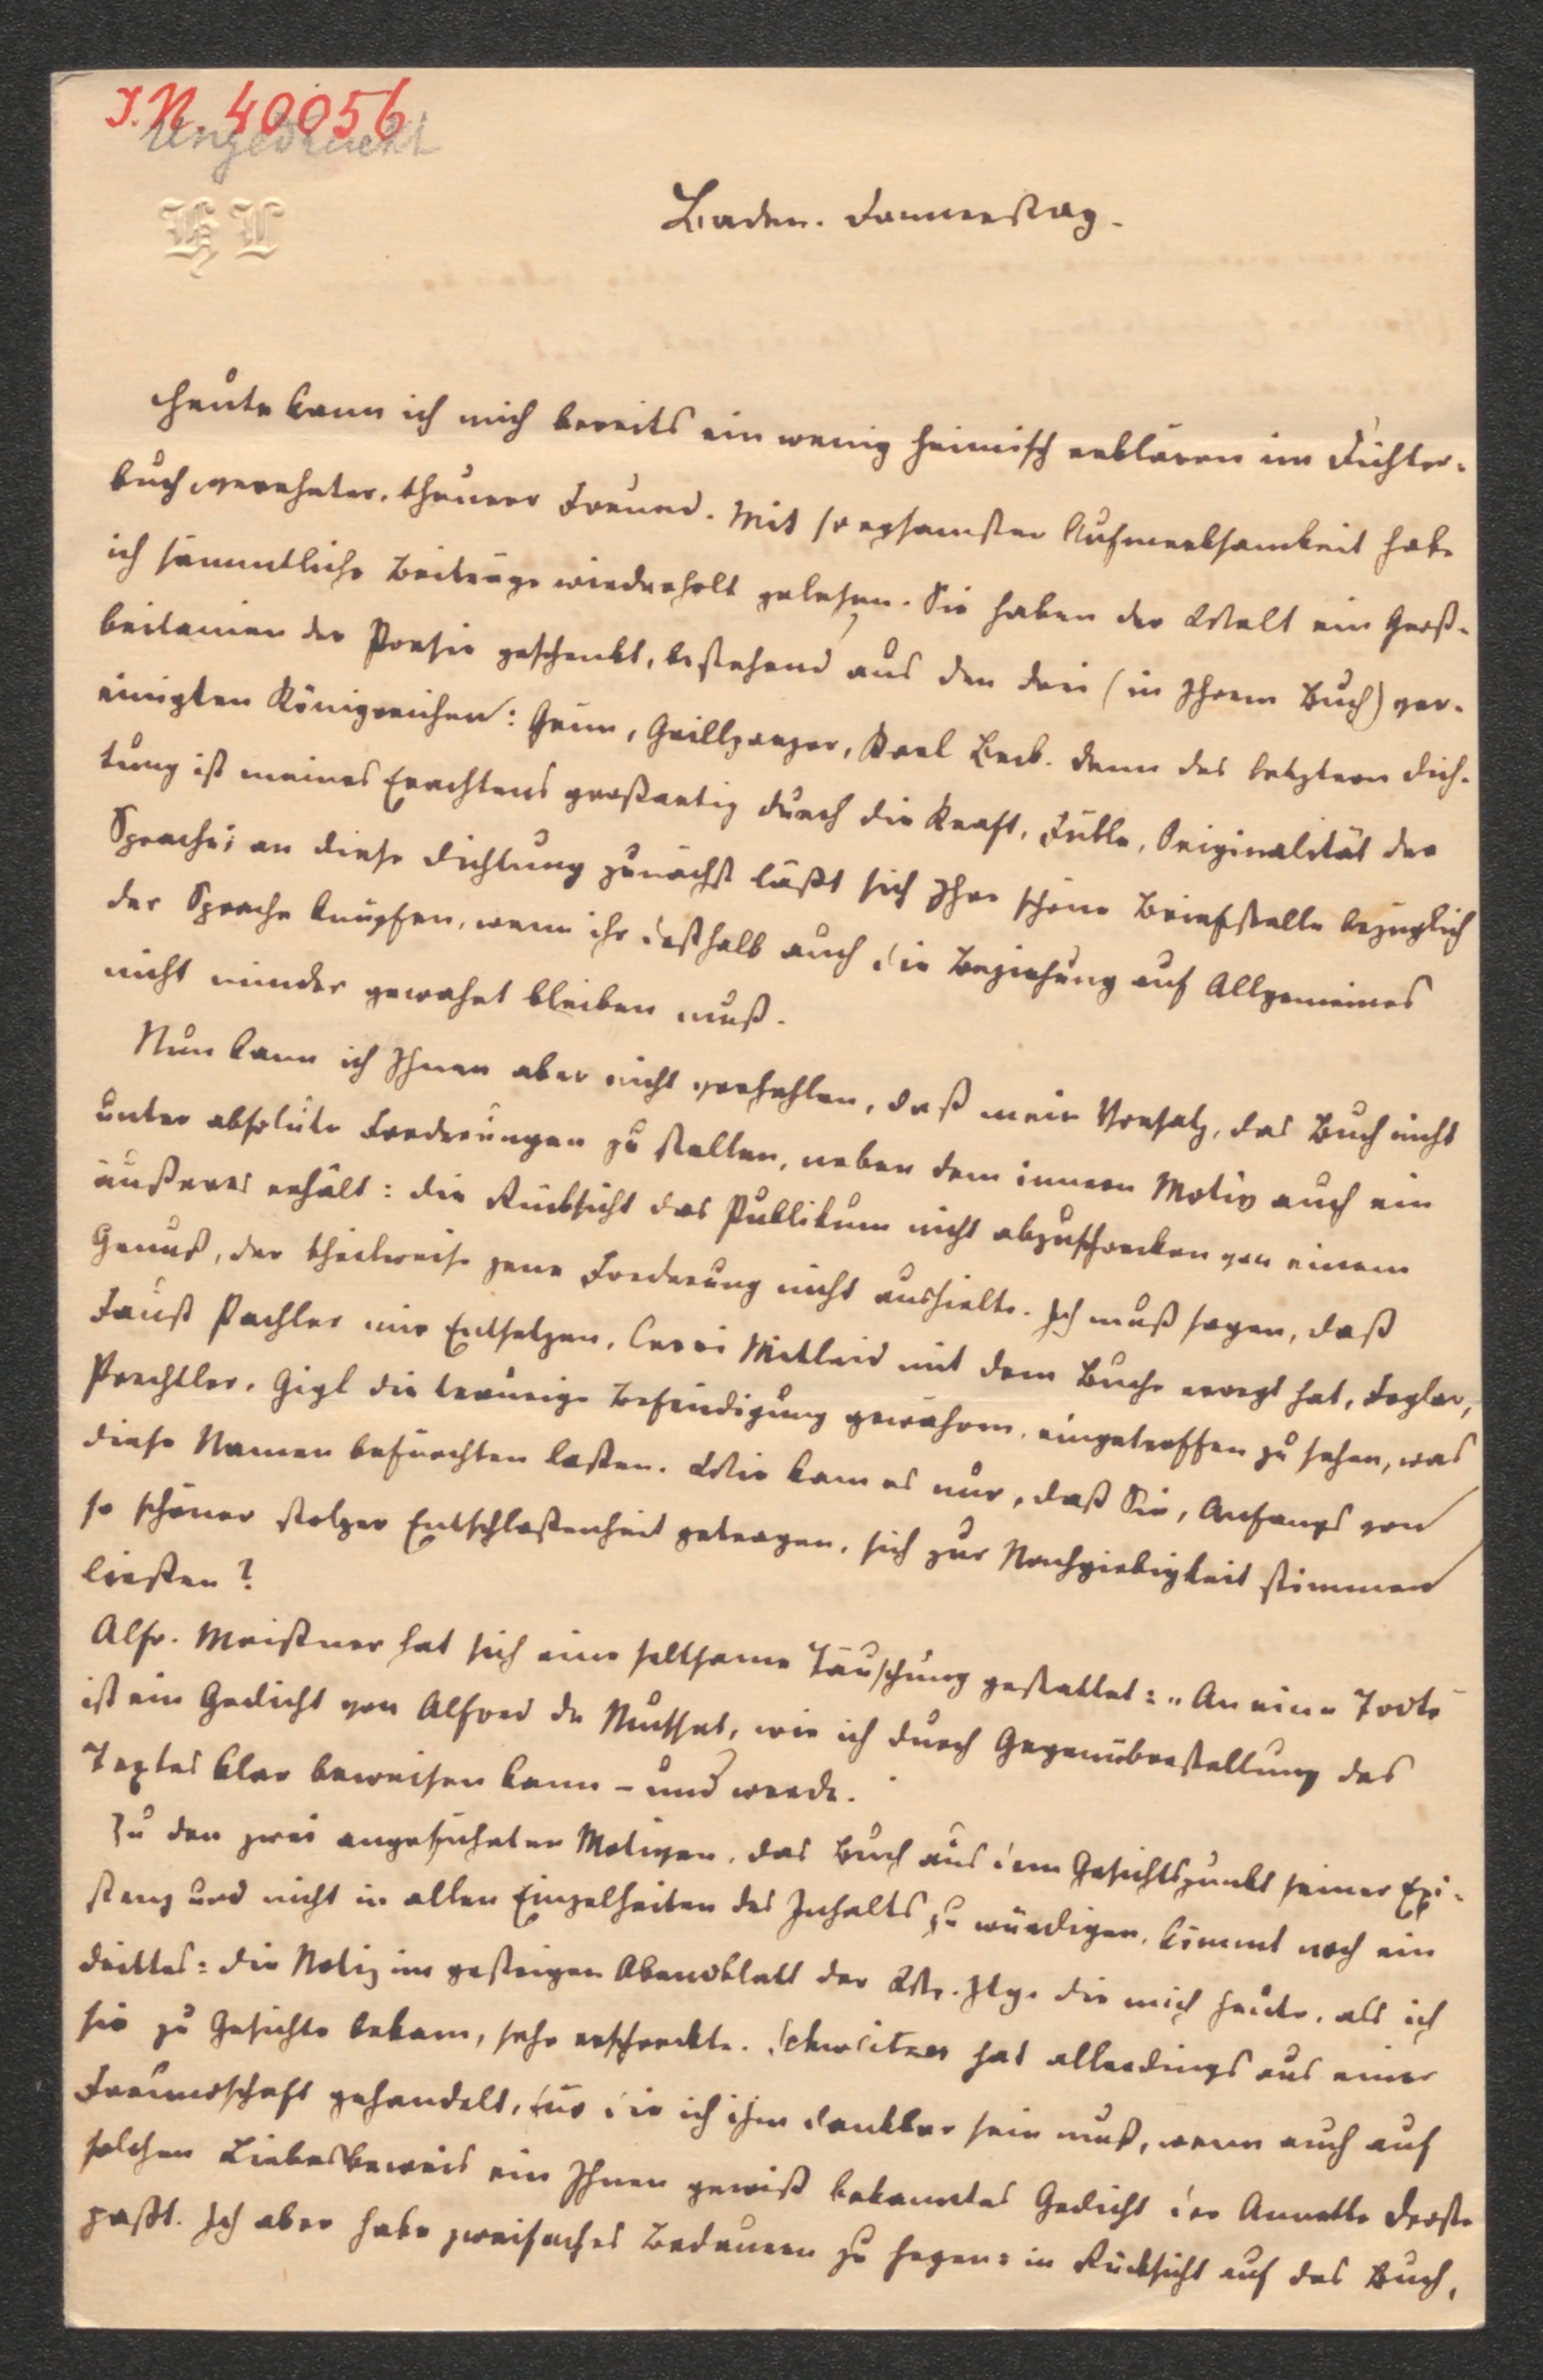 I.N. 40056
Ungedruckt
HL
Baden. Donnerstag.
Heute kann ich mich bereits ein wenig heimisch erklären im Dichter-
buch, verehrter, theurer Freund. Mit sorgsamster Aufmerksamkeit habe
ich sämmtliche Beiträge wiederholt gelesen. Sie haben der Welt ein Groß-
britanien der Poesie geschenkt, bestehend aus den drei (in Ihrem Buch) ver-
einigten Königreichen: Grün, Grillparzer, Karl Beck. Denn des letztern Dich-
tung ist meines Erachtens großartig durch die Kraft, Fülle, Originalität der
Sprache; an diese Dichtung zunächst läßt sich Ihre schöne Briefstelle bezüglich
der Sprache knüpfen, wenn ihr deßhalb auch die Beziehung auf Allgemeines
nicht minder gewahrt bleiben muß.
Nun kann ich Ihnen aber nicht verhehlen, daß mein Vorsatz, das Buch nicht
unter absolute Forderungen zu stellen, neben dem innern Motiv auch ein
äußeres erhält: die Rücksicht das Publikum nicht abzuschrecken von einem
Genuß, der theilweise jene Forderung nicht aushielte. Ich muß sagen, daß
Faust Pachler mir Entsetzen, Cerri Mitleid mit dem Buche erregt hat, Foglar,
Prechtler, Gigl die traurige Befriedigung gewähren, eingetroffen zu sehen, was
diese Namen befürchten laßen. Wie kam es nur, daß Sie, Anfangs von
so schöner stolzer Entschloßenheit getragen, sich zur Nachgiebigkeit stimmen
ließen?
Alfr. Meißner hat sich eine seltsame Täuschung gestattet: "An eine Todte"
ist ein Gedicht von Alfred de Musset, wie ich durch Gegenüberstellung des
Textes klar beweisen kann – und werde.
Zu den zwei angeführten Motiven, das Buch aus dem Gesichtspunkt seiner Exi-
stenz und nicht in allen Einzelheiten des Inhalts zu würdigen, kömmt noch ein
drittes: die Notiz im gestrigen Abendblatt der Wr. Ztg. die mich heute, als ich
sie zu Gesichte bekam, sehr erschreckte. Schweitzer hat allerdings aus einer
Freundschaft gehandelt, für die ich ihm dankbar sein muß, wenn auch auf
solchen Liebesbeweis ein Ihnen gewiß bekanntes Gedicht der Annette Droste
paßt. Ich aber habe zweifaches Bedauern zu hegen: in Rücksicht auf das Buch,